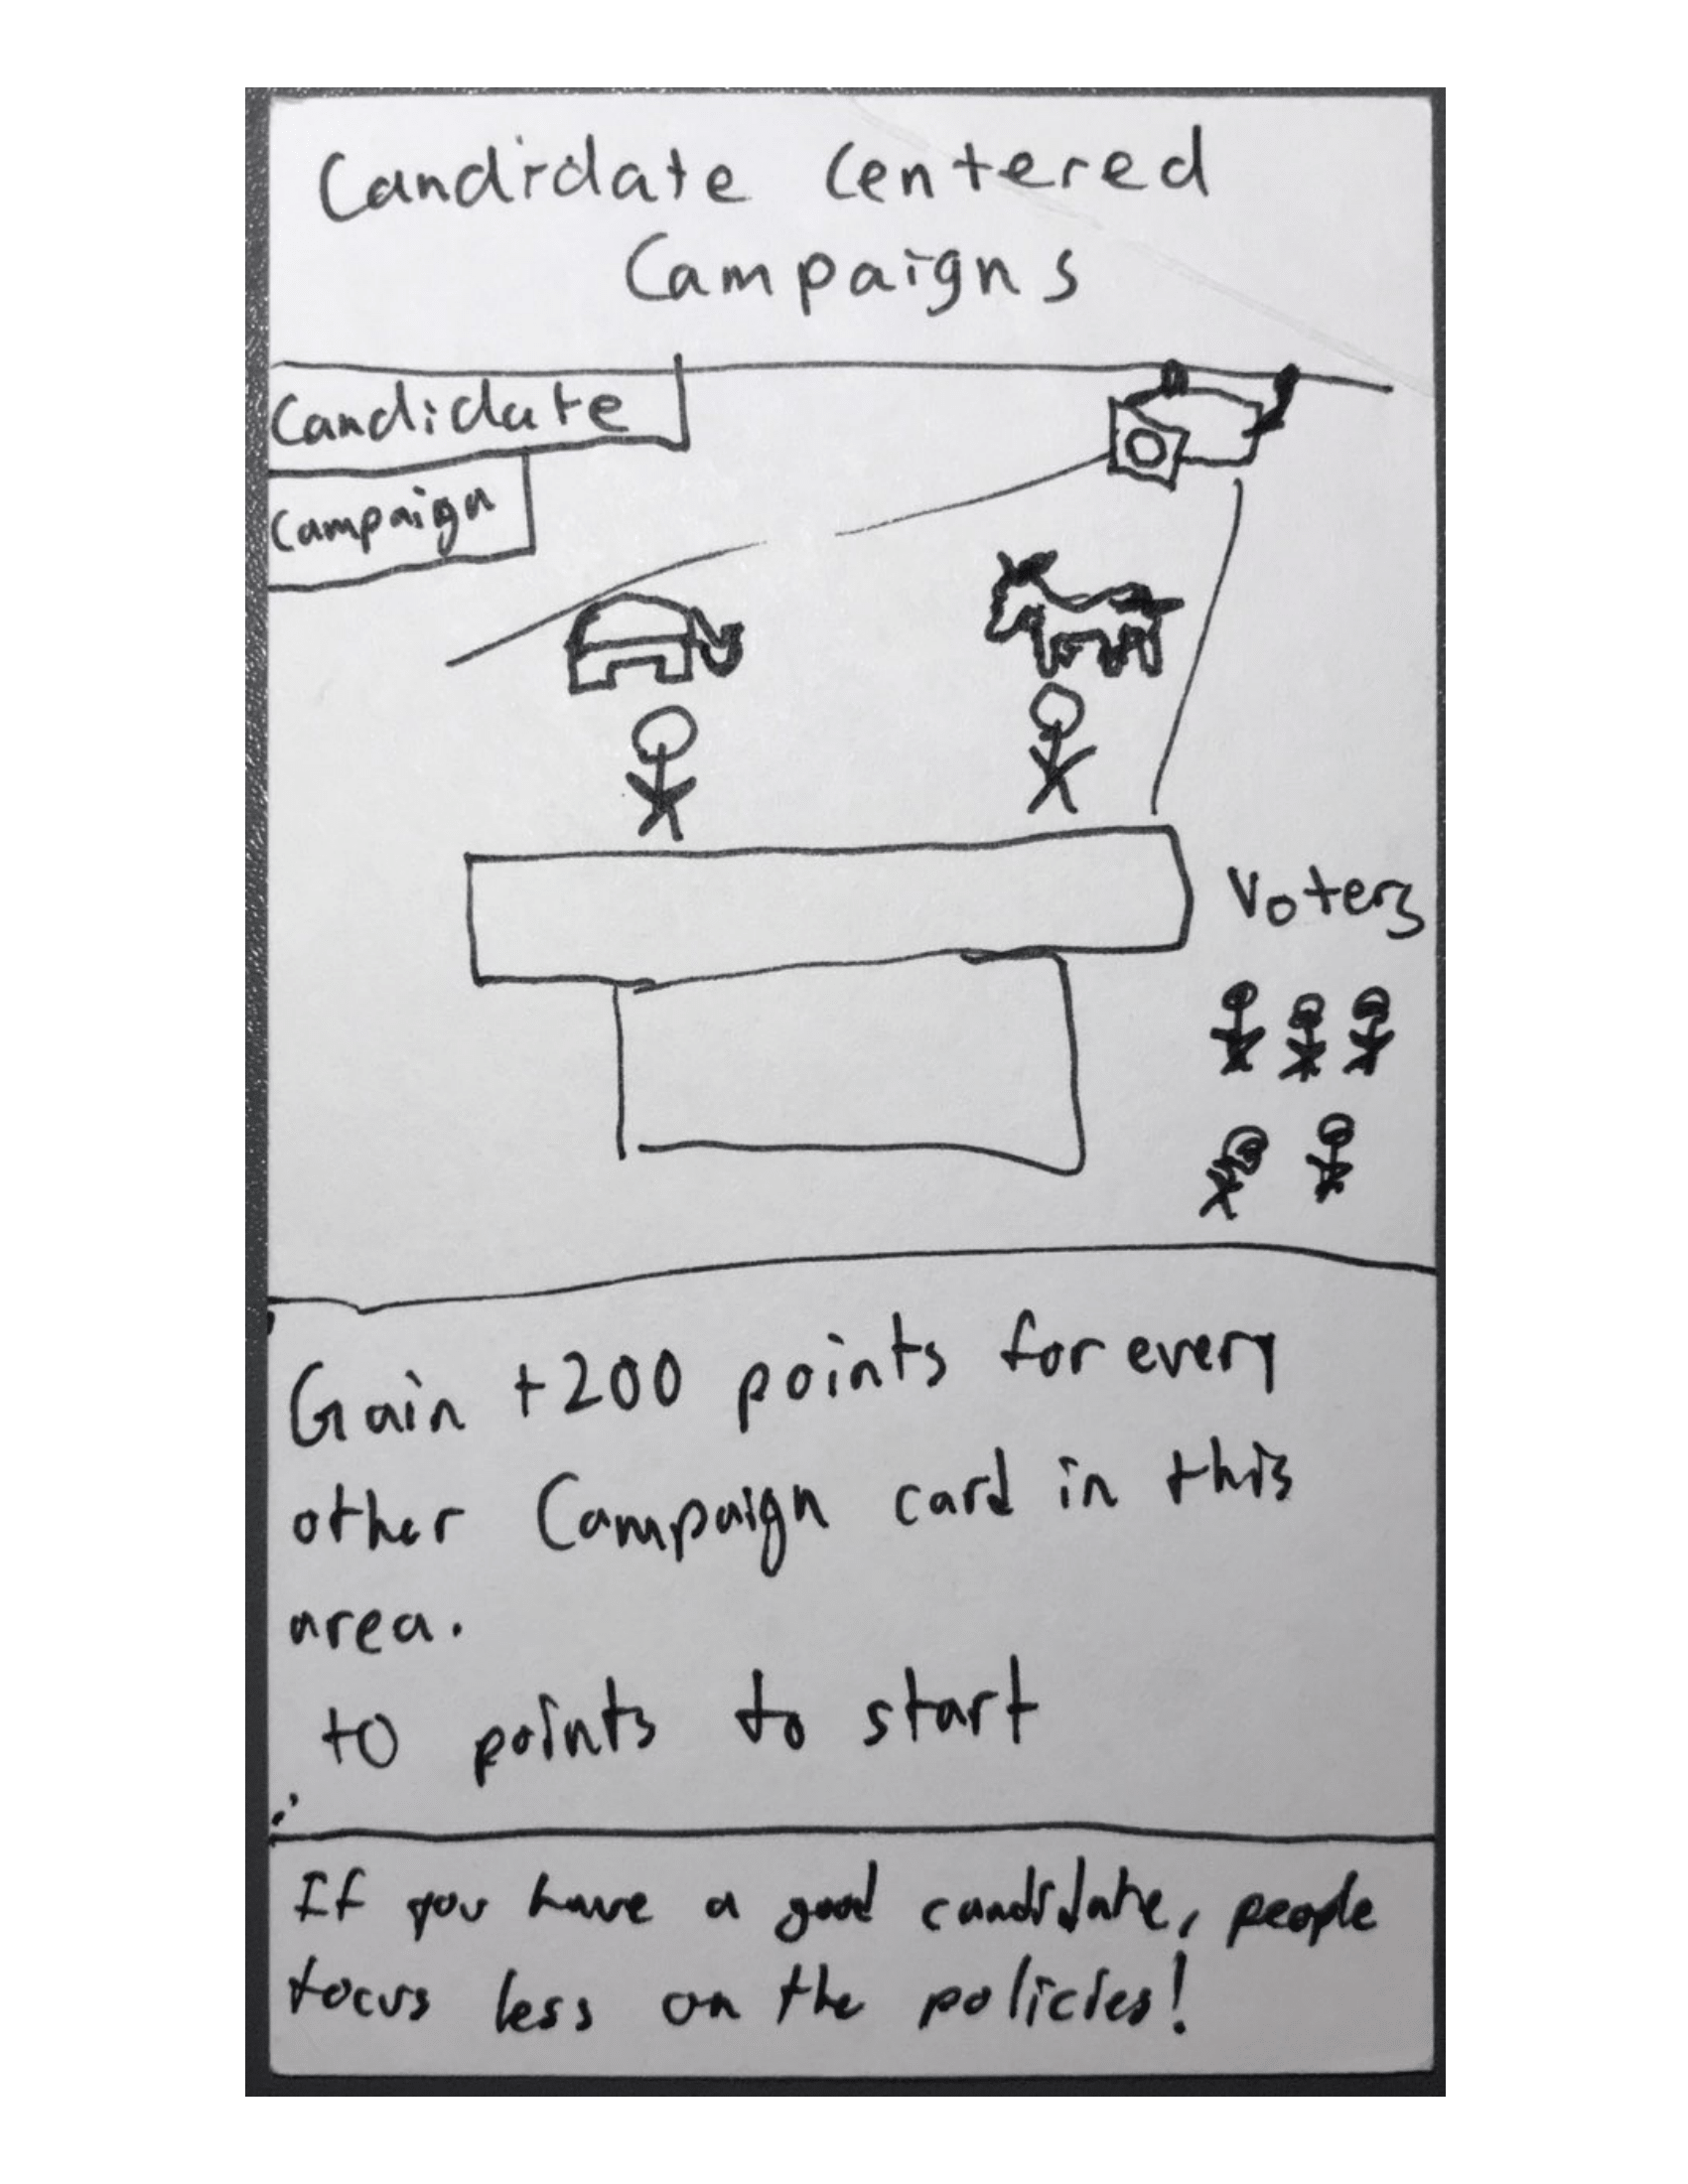 Candidate Centered
Campaigns
Candidate
Campaign
Voters
Gain +200 points for every
other Campaign card in this
area.
+0 points to start
If you have a good candidate, people
focus less on the policies!